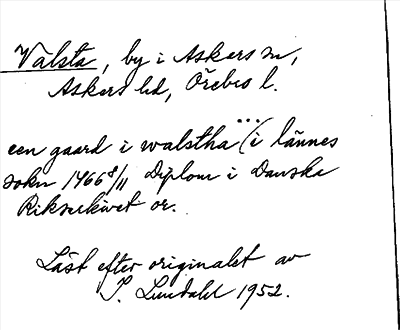 Valsta, by i Askers sn,
Askers hd, Örebro l.
een gaard i walstha ... (i lännes
sokn 1466 8/11 Diplom i Danska
Riksarkivet or.
Läst efter originalet av
S. Lundahl 1952.